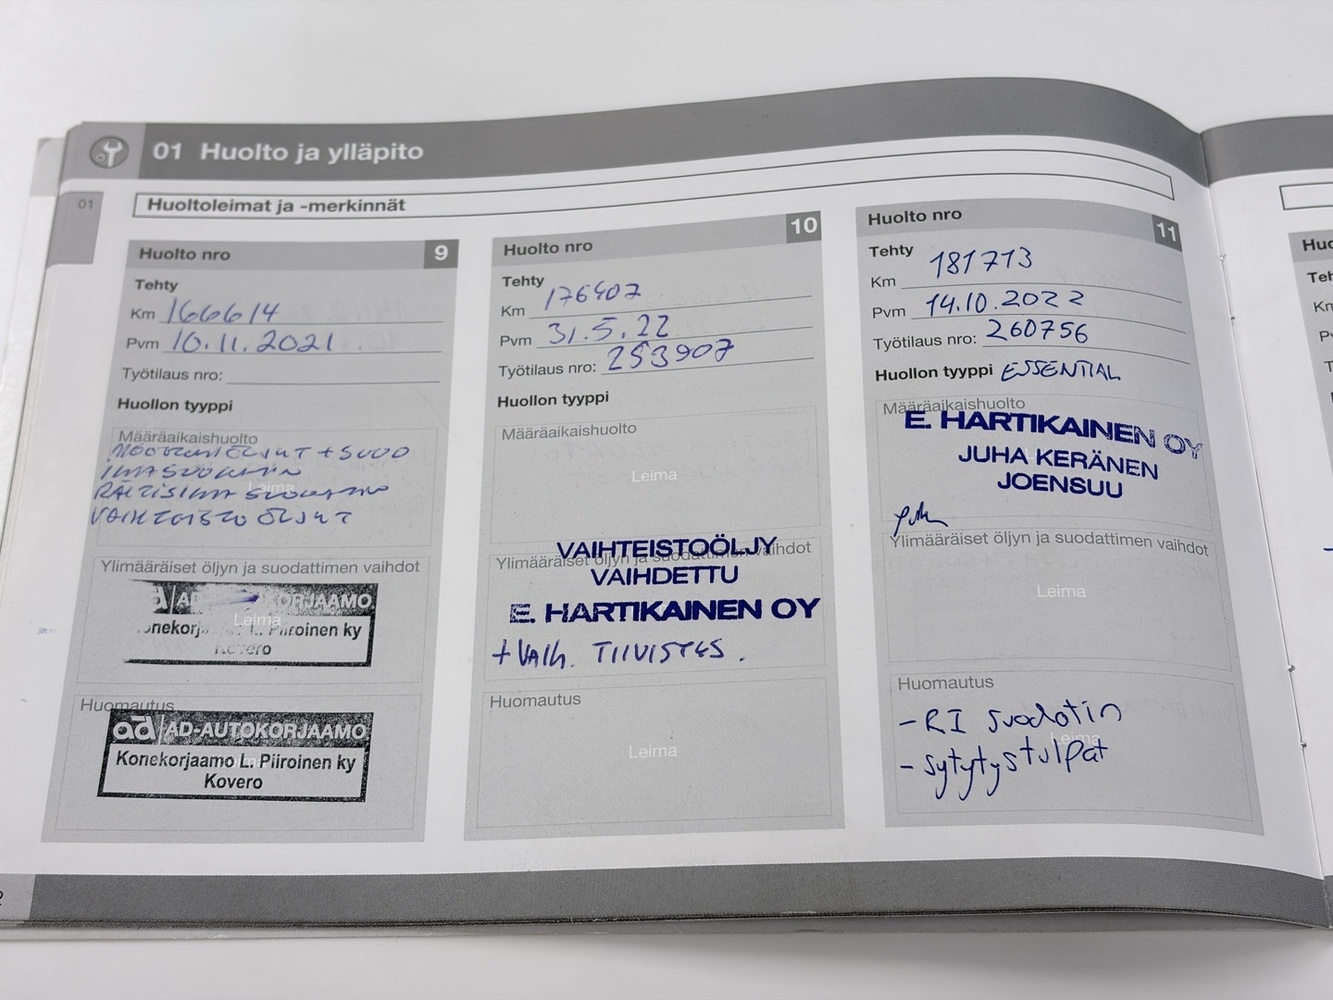 01 Huolto ja ylläpito
01
Huoltoleimat ja -merkinnät
Huolto nro 9
Tehty
Km 166614
Pvm 10.11.2021
Työtilaus nro:
Huollon tyyppi
Määräaikaishuolto
MOOTTORIÖLJYT + SUOD
ILMASUODATIN
RAITISILMA SUODATIN
VAIHTEISTO ÖLJYT
Leima
Ylimääräiset öljyn ja suodattimen vaihdot
KORJAAMO
Leima
Piiroinen ky
Huomautus
ad AD-AUTOKORJAAMO
Konekorjaamo L. Piiroinen ky
Kovero
Huolto nro 10
Tehty
Km 176407
Pvm 31.5.22
Työtilaus nro: 253907
Huollon tyyppi
Määräaikaishuolto
Leima
Ylimääräiset öljyn ja suodattimen vaihdot
VAIHTEISTOÖLJY
VAIHDETTU
E. HARTIKAINEN OY
+ VAIH. TIIVISTES.
Huomautus
Leima
Huolto nro 11
Tehty
Km 181713
Pvm 14.10.2022
Työtilaus nro: 260756
Huollon tyyppi ESSENTIAL
Määräaikaishuolto
E. HARTIKAINEN OY
JUHA KERÄNEN
JOENSUU
Ylimääräiset öljyn ja suodattimen vaihdot
Leima
Huomautus
- RI suodatin
Leima
- sytytystulpat